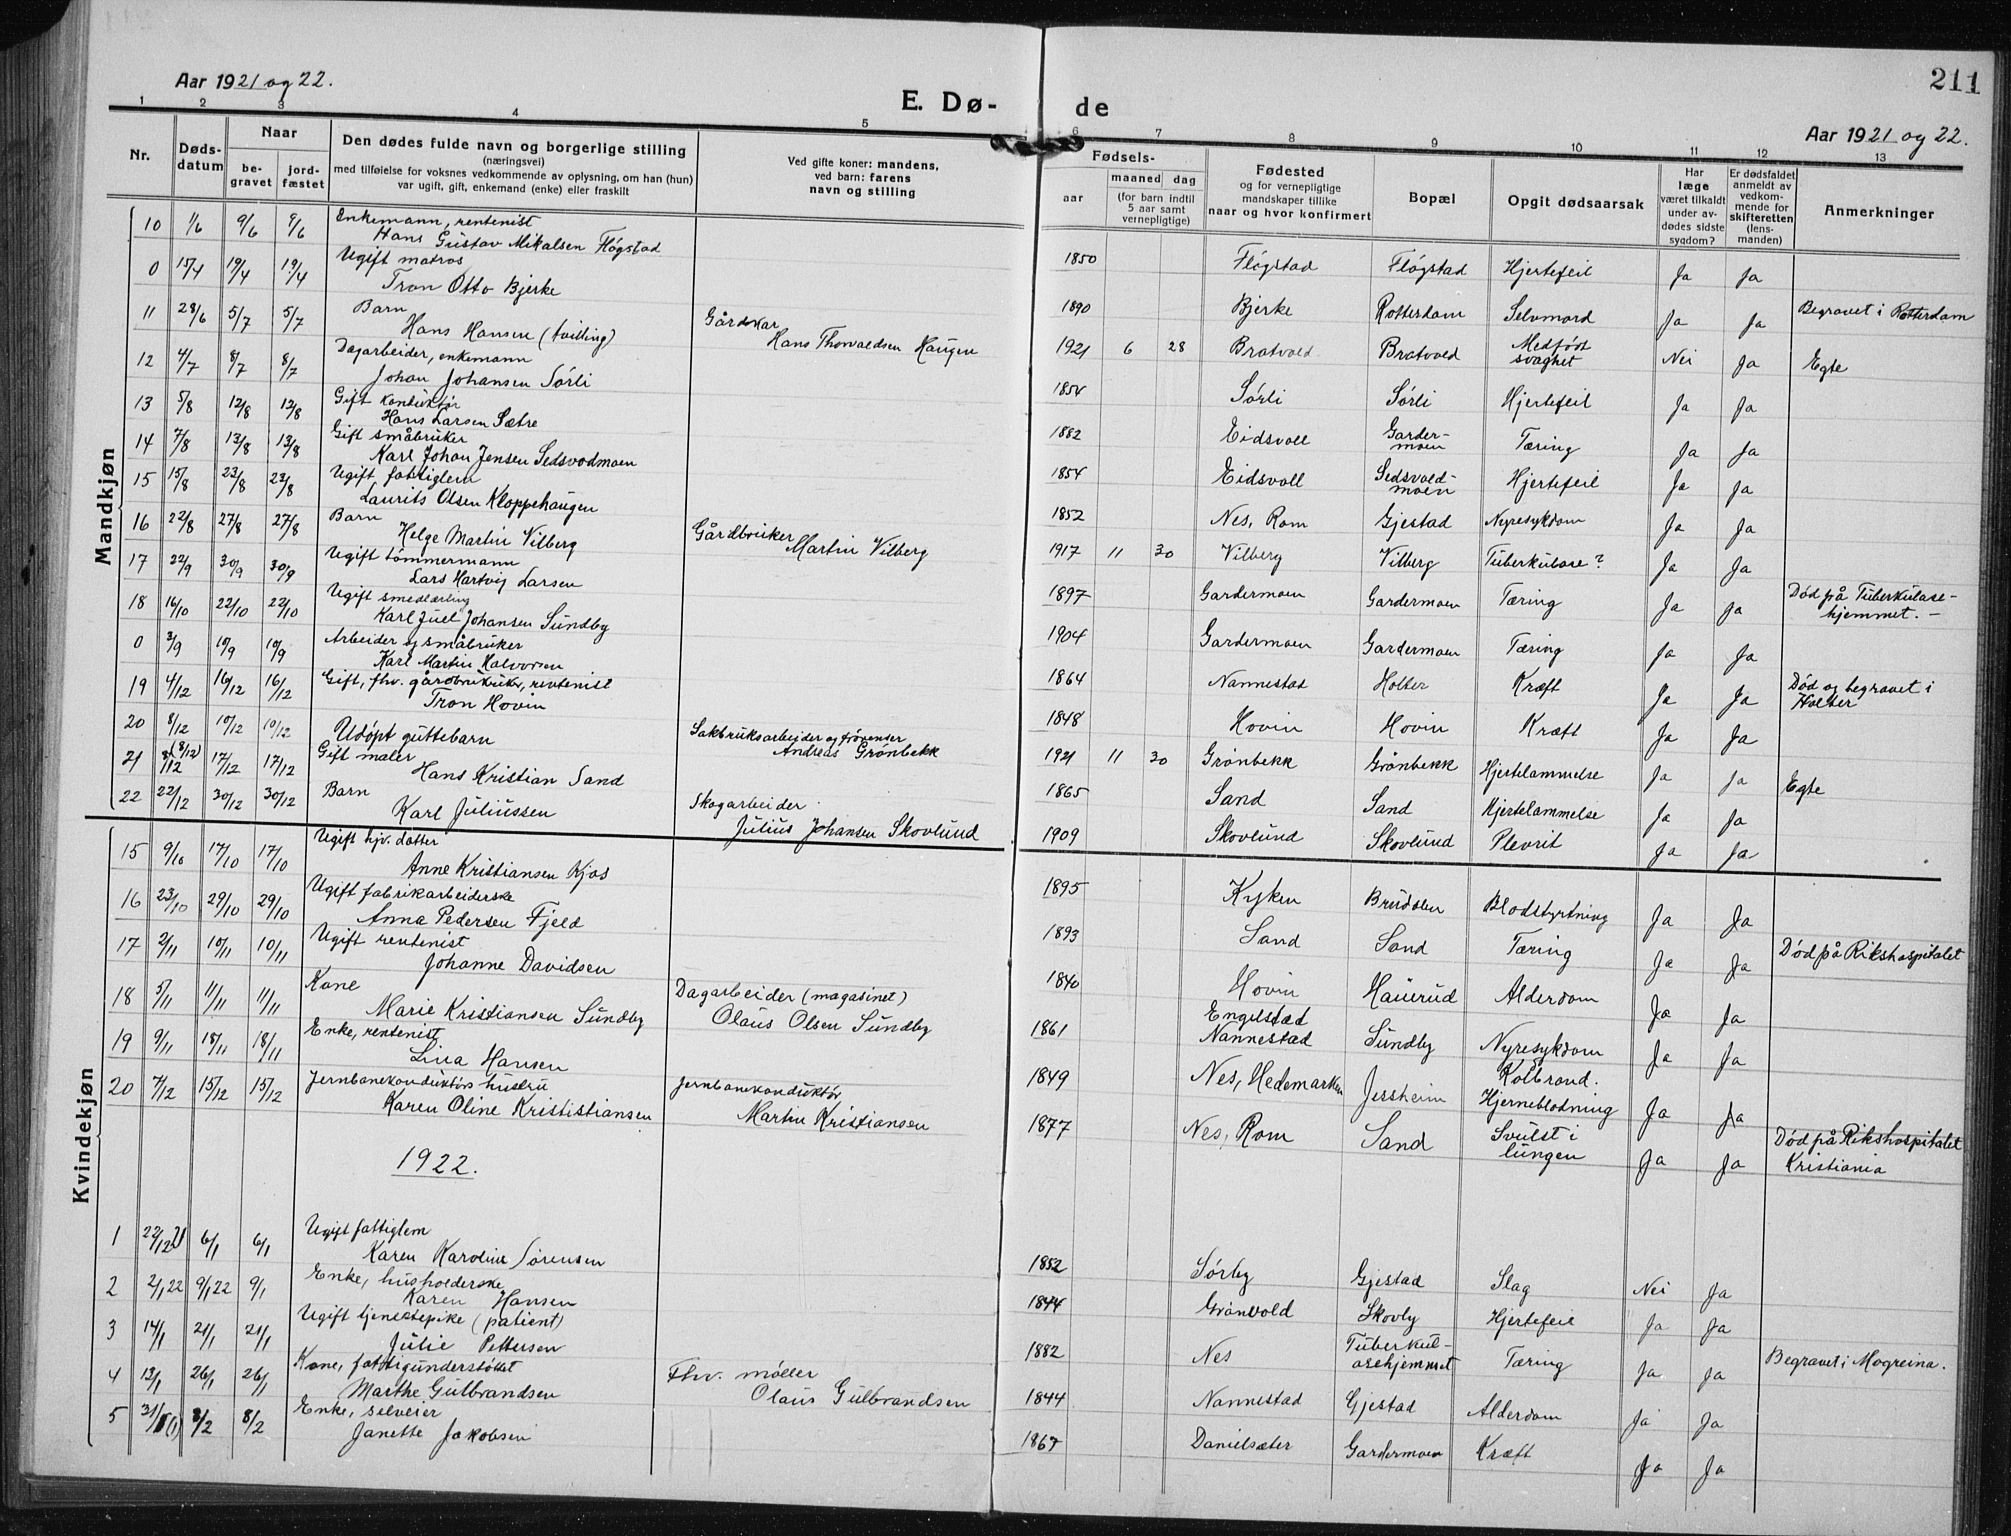 211
Aar 1921 og 22.
E. Dø- de
Aar 1921 og 22.
1 2 3 4 5 6 7 8 9 10 11 12 13
Nr.
Døds-
datum
Naar
be-
gravet
jord-
fæstet
Den dødes fulde navn og borgerlige stilling
(næringsvei)
med tilføielse for voksnes vedkommende av oplysning, om han (hun)
var ugift, gift, enkemand (enke) eller fraskilt
Ved gifte koner: mandens,
ved barn: farens
navn og stilling
Fødsels-
aar
maaned
dag
(for barn indtil
5 aar samt
vernepligtige)
Fødested
og for vernepligtige
mandskaper tillike
naar og hvor konfirmert
Bopæl
Opgit dødsaarsak
Har
læge
været tilkaldt
under av-
dødes sidste
sygdom?
Er dødsfaldet
anmeldt av
vedkom-
mende for
skifteretten
(lens-
manden)
Anmerkninger
Mandkjøn
10 1/6 9/6 9/6 Enkemann, rentenist
Hans Gustav Mikalsen Fløgstad 1850 Fløgstad Fløgstad Hjertefeil Ja Ja
0 15/4 19/4 19/4 Ugift matros
Tron Otto Bjerke 1890 Bjerke Rotterdam Selvmord Ja Ja Begravet i Rotterdam
11 28/6 5/7 5/7 Barn
Hans Hansen (tvilling) Gårdskar
Hans Thorvaldsen Haugen 1921 6 28 Bratvold Bratvold Medfødt
svaghet Nei Ja Egte
12 4/7 8/7 8/7 Dagarbeider, enkemann
Johan Johansen Sørli 1854 Sørli Sørli Hjertefeil Ja Ja
13 5/8 12/8 12/8 Gift konduktør
Hans Larsen Sætre 1882 Eidsvoll Garder-
moen Tæring Ja Ja
14 7/8 13/8 13/8 Gift småbruker
Karl Johan Jensen Sedsvodmoen 1854 Eidsvoll Sedsvold-
moen Hjertefeil Ja Ja
15 15/8 23/8 23/8 Ugift fattiglem
Laurits Olsen Kloppehaugen 1852 Nes, Rom Gjestad Nyresykdom Ja Ja
16 22/8 27/8 27/8 Barn
Helge Martin Vilberg Gårdbruker
Martin Vilberg 1917 11 30 Vilberg Vilberg Tuberkulose? Ja Ja
17 22/9 30/9 30/9 Ugift tømmermann
Lars Hartvig Larsen 1897 Gardermoen Gardermoen Tæring Ja Ja Død på Tuberkulose-
hjemmet. —
18 16/10 22/10 22/10 Ugift smedlærling
Karl Juel Johansen Sundby 1904 Gardermoen Gardermoen Tæring Ja Ja
0 3/9 10/9 10/9 Arbeider og småbruker
Karl Martin Halvorsen 1864 Nannestad Holter Kræft Ja Ja Død og begravet i
Holter
19 4/12 16/12 16/12 Gift, fhv. gårdbruker, rentenist
Tron Hovin 1848 Hovin Hovin Kræft Ja Ja
20 8/12 10/12 10/12 Udøpt guttebarn Sakbruksarbeider og
Andreas Grønbekk 1921 11 30 Grønbekk Grønbekk Hjertelammelse Ja Ja Egte
21 (8/12) 17/12 17/12 Gift maler
Hans Kristian Sand 1865 Sand Sand Hjertelammelse Ja Ja
22 22/12 30/12 30/12 Barn
Karl Juliussen Skogarbeider
Julius Johansen Skovlund 1909 Skovlund Skovlund Plevrit Ja Ja
Kvindekjøn
15 9/10 17/10 17/10 Ugift hjv. datter
Anne Kristiansen Kjos 1895 Kyken Bruddlen Blodstyrtning Ja Ja
16 23/10 29/10 29/10 Ugift fabrikarbeiderske
Anna Pedersen Fjeld 1893 Sand Sand Tæring Ja Ja Død på Rikshospitalet
17 2/11 10/11 10/11 Ugift rentenist
Johanne Davidsen 1840 Hovin Hauerud Alderdom Ja Ja
18 5/11 11/11 11/11 Kone
Marie Kristiansen Sundby Dagarbeider (magasinet)
Olaus Olsen Sundby 1861 Engelstad
Nannestad Sundby Nyresykdom Ja Ja
19 9/11 18/11 18/11 Enke, rentenist
Lina Hansen 1849 Nes, Hedemarken Jessheim Kolbrand.
Hjerneblødning Ja Ja
20 7/12 15/12 15/12 Jernbanekonduktørs hustru
Karen Oline Krististiansen Jernbanekonduktør
Martin Kristiansen 1877 Nes, Rom Sand Svulst i
lungen Ja Ja Død på Rikshospitalet
Kristiania
1922.
1 22/12 21 6/1 6/1 Ugift fattiglem
Karen Karoline Sørensen 1852 Sørby Gjestad Slag Nei Ja
2 2/1 22 9/1 22 9/1 Enke, husholderske
Karen Hansen 1844 Grønvold Skovly Hjertefeil Ja Ja
3 14/1 21/1 21/1 Ugift tjenestepike (patient)
Julie Pettersen 1882 Nes Tuberkul-
osehjemmet Tæring Ja Ja Begravet i Mogreina.
4 13/1 26/1 26/1 Kone, fattigunderstøttet
Marthe Gulbrandsen Fhv. møller
Olaus Gulbrandsen 1844 Nannestad Gjestad Alderdom Ja Ja
5 8/2 8/2 Enke, selveier
Janette Jakobsen 1867 Danielsæter Gardermoen Kræft Ja Ja